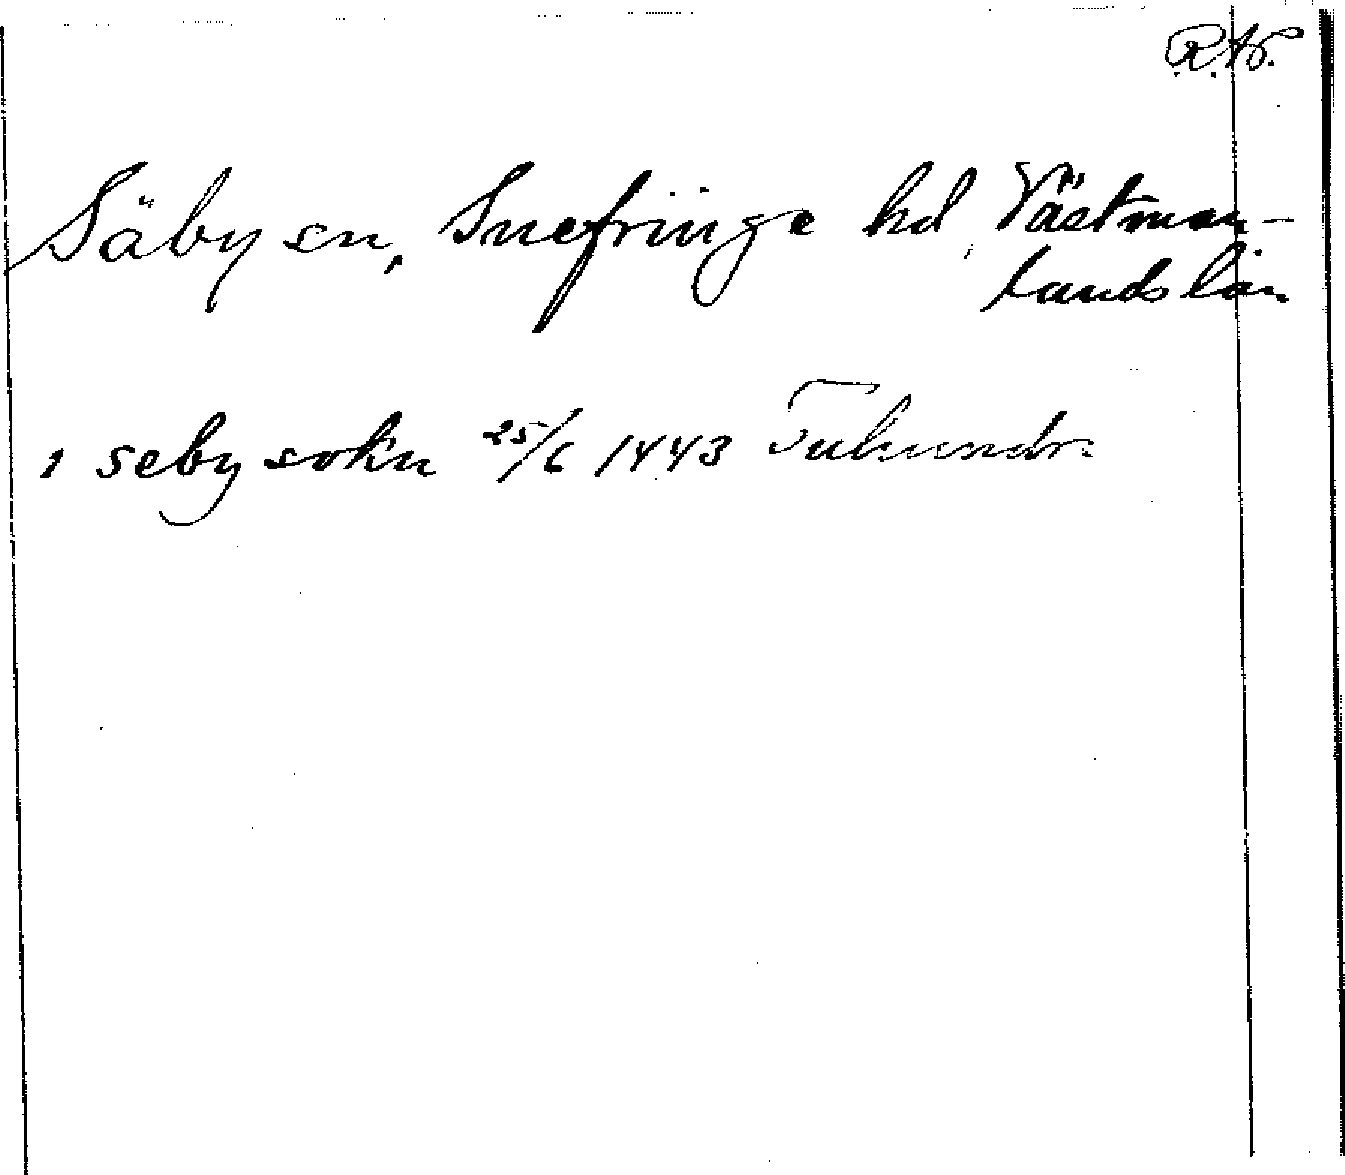 Säby sn, Snefringe hd, Västman-
lands län
i seby sokn 25/6 1443